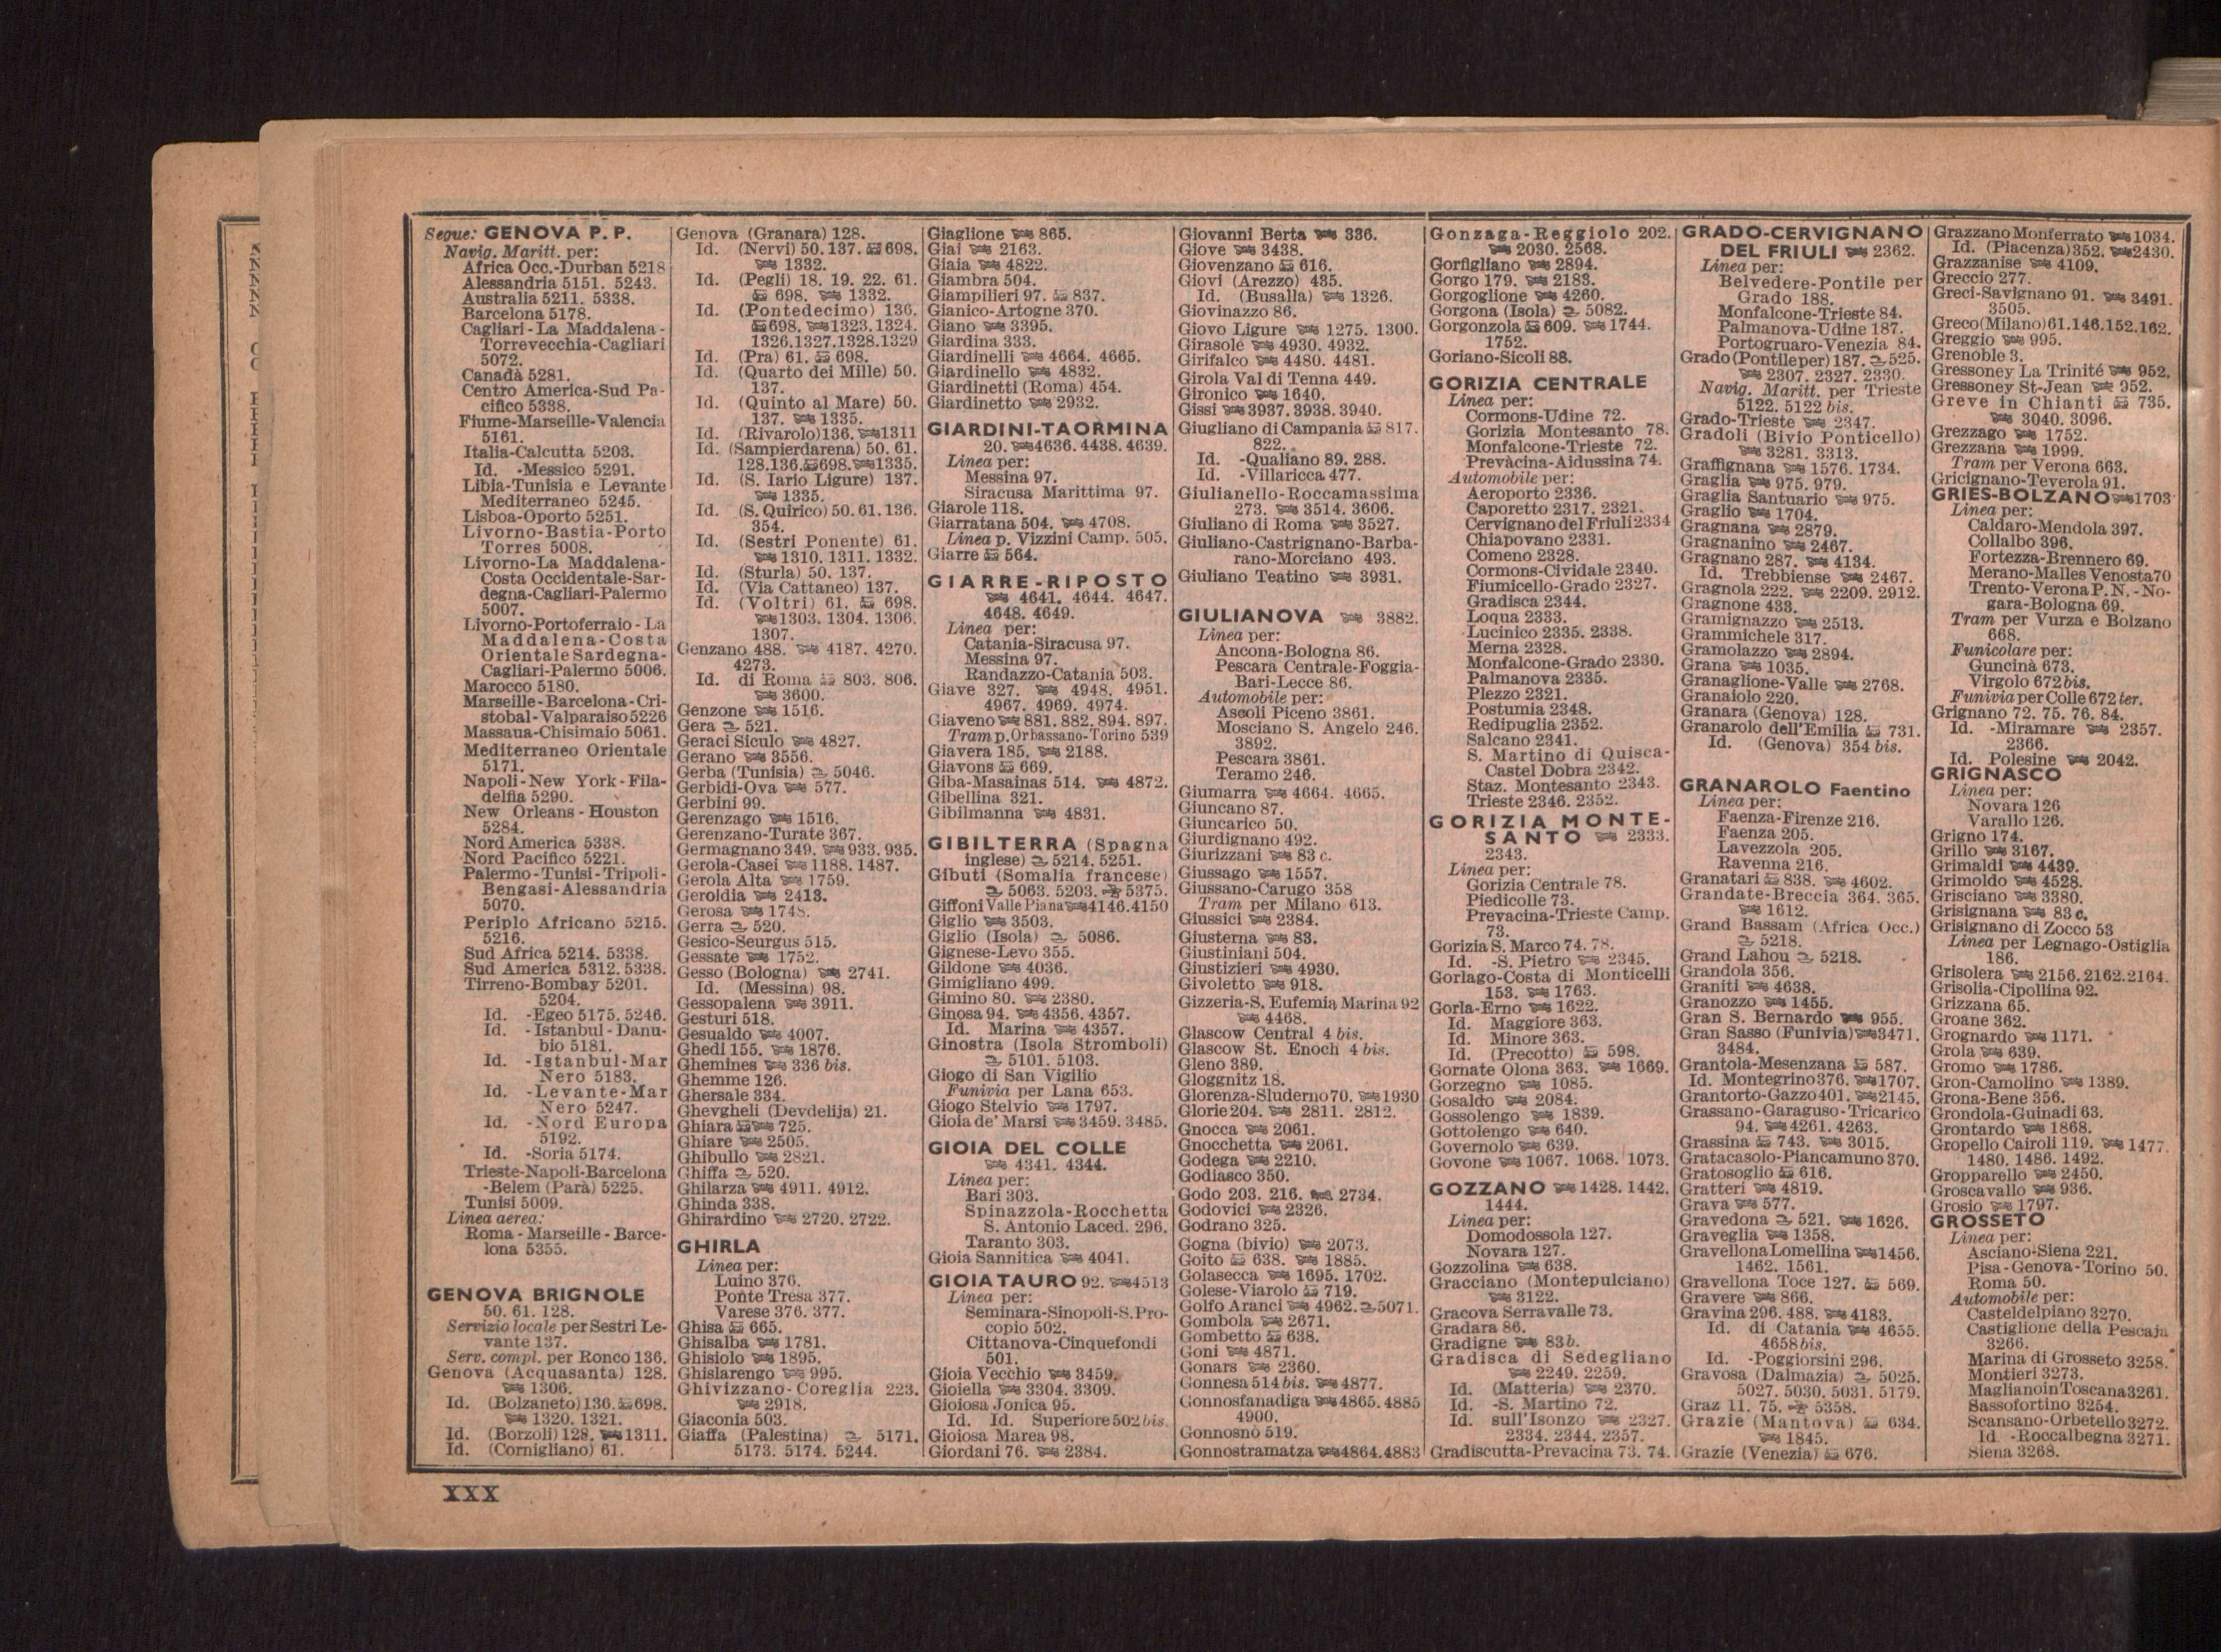 Segue: GENOVA P. P.
Navig. Maritt. per:
Africa Occ.-Durban 5218
Alessandria 5151. 5243.
Australia 5211. 5338.
Barcelona 5178.
Cagliari - La Maddalena -
Torrevecchia-Cagliari
5072.
Canadà 5281.
Centro America-Sud Pa-
cifico 5338.
Fiume-Marseille-Valencia
5161.
Italia-Calcutta 5203.
Id. -Messico 5291.
Libia-Tunisia e Levante
Mediterraneo 5245.
Lisboa-Oporto 5251.
Livorno-Bastia-Porto
Torres 5008.
Livorno-La Maddalena-
Costa Occidentale-Sar-
degna-Cagliari-Palermo
5007.
Livorno-Portoferraio - La
Maddalena-Costa
Orientale Sardegna-
Cagliari-Palermo 5006.
Marocco 5180.
Marseille-Barcelona-Cri-
stobal-Valparaiso 5226
Massaua-Chisimaio 5061.
Mediterraneo Orientale
5171.
Napoli-New York-Fila-
delfia 5290.
New Orleans-Houston
5284.
Nord America 5338.
Nord Pacifico 5221.
Palermo-Tunisi-Tripoli-
Bengasi-Alessandria
5070.
Periplo Africano 5215.
5216.
Sud Africa 5214. 5338.
Sud America 5312. 5338.
Tirreno-Bombay 5201.
5204.
Id. -Egeo 5175. 5246.
Id. -Istanbul-Danu-
bio 5181.
Id. -Istanbul-Mar
Nero 5183.
Id. -Levante-Mar
Nero 5247.
Id. -Nord Europa
5192.
Id. -Soria 5174.
Trieste-Napoli-Barcelona
-Belem (Parà) 5225.
Tunisi 5009.
Linea aerea:
Roma - Marseille - Barce-
lona 5355.
GENOVA BRIGNOLE
50. 61. 128.
Servizio locale per Sestri Le-
vante 137.
Serv. compl. per Ronco 136.
Genova (Acquasanta) 128.
1306.
Id. (Bolzaneto) 136. 698.
1320. 1321.
Id. (Borzoli) 128. 1311.
Id. (Cornigliano) 61.
Genova (Granara) 128.
Id. (Nervi) 50. 137. 698.
1332.
Id. (Pegli) 18. 19. 22. 61.
698. 1332.
Id. (Pontedecimo) 136.
698. 1323. 1324.
1326. 1327. 1328. 1329
Id. (Pra) 61. 698.
Id. (Quarto dei Mille) 50.
137.
Id. (Quinto al Mare) 50.
137. 1335.
Id. (Rivarolo) 136. 1311
Id. (Sampierdarena) 50. 61.
128. 136. 698. 1335.
Id. (S. Ilario Ligure) 137.
1335.
Id. (S. Quirico) 50. 61. 136.
354.
Id. (Sestri Ponente) 61.
1310. 1311. 1332.
Id. (Sturla) 50. 137.
Id. (Via Cattaneo) 137.
Id. (Voltri) 61. 698.
1303. 1304. 1306.
1307.
Genzano 488. 4187. 4270.
4273.
Id. di Roma 803. 806.
3600.
Genzone 1516.
Gera 521.
Geraci Siculo 4827.
Gerano 3556.
Gerba (Tunisia) 5046.
Gerbidi-Ova 577.
Gerbini 99.
Gerenzago 1516.
Gerenzano-Turate 367.
Germagnano 349. 933. 935.
Gerola-Casei 1188. 1487.
Gerola Alta 1759.
Geroldia 2413.
Gerosa 1748.
Gerra 520.
Gesico-Seurgus 515.
Gessate 1752.
Gesso (Bologna) 2741.
Id. (Messina) 98.
Gessopalena 3911.
Gesturi 518.
Gesualdo 4007.
Ghedi 155. 1876.
Ghemines 336 bis.
Ghemme 126.
Ghersale 334.
Ghevgheli (Devdelija) 21.
Ghiara 725.
Ghiare 2505.
Ghibullo 2821.
Ghiffa 520.
Ghilarza 4911. 4912.
Ghinda 338.
Ghirardino 2720. 2722.
GHIRLA
Linea per:
Luino 376.
Ponte Tresa 377.
Varese 376. 377.
Ghisa 665.
Ghisalba 1781.
Ghisiolo 1895.
Ghislarengo 995.
Ghivizzano-Coreglia 223.
2918.
Giaconia 503.
Giaffa (Palestina) 5171.
5173. 5174. 5244.
Giaglione 865.
Giai 2163.
Giaia 4822.
Giambra 504.
Giampilieri 97. 837.
Gianico-Artogne 370.
Giano 3395.
Giardina 333.
Giardinelli 4664. 4665.
Giardinello 4832.
Giardinetti (Roma) 454.
Giardinetto 2932.
GIARDINI-TAORMINA
20. 4636. 4438. 4639.
Linea per:
Messina 97.
Siracusa Marittima 97.
Giarole 118.
Giarratana 504. 4708.
Linea p. Vizzini Camp. 505.
Giarre 564.
GIARRE-RIPOSTO
4641. 4644. 4647.
4648. 4649.
Linea per:
Catania-Siracusa 97.
Messina 97.
Randazzo-Catania 503.
Giave 327. 4948. 4951.
4967. 4969. 4974.
Giaveno 881. 882. 894. 897.
Tram p. Orbassano-Torino 539
Giavera 185. 2188.
Giavons 669.
Giba-Masainas 514. 4872.
Gibellina 321.
Gibilmanna 4831.
GIBILTERRA (Spagna
inglese) 5214. 5251.
Gibuti (Somalia francese)
5063. 5203. 5375.
Giffoni Valle Piana 4146. 4150
Giglio 3503.
Giglio (Isola) 5086.
Gignese-Levo 355.
Gildone 4036.
Gimigliano 499.
Gimino 80. 2380.
Ginosa 94. 4356. 4357.
Id. Marina 4357.
Ginostra (Isola Stromboli)
5101. 5103.
Giogo di San Vigilio
Funivia per Lana 653.
Giogo Stelvio 1797.
Gioia de' Marsi 3459. 3485.
GIOIA DEL COLLE
4341. 4344.
Linea per:
Bari 303.
Spinazzola-Rocchetta
S. Antonio Laced. 296.
Taranto 303.
Gioia Sannitica 4041.
GIOIA TAURO 92. 4513
Linea per:
Seminara-Sinopoli-S. Pro-
copio 502.
Cittanova-Cinquefondi
501.
Gioia Vecchio 3459.
Gioiella 3304. 3309.
Gioiosa Jonica 95.
Id. Id. Superiore 502 bis.
Gioiosa Marea 98.
Giordani 76. 2384.
Giovanni Berta 336.
Giove 3438.
Giovenzano 616.
Giovi (Arezzo) 435.
Id. (Busalla) 1326.
Giovinazzo 86.
Giovo Ligure 1275. 1300.
Girasole 4930. 4932.
Girifalco 4480. 4481.
Girola Val di Tenna 449.
Gironico 1640.
Gissi 3937. 3938. 3940.
Giugliano di Campania 817.
822.
Id. -Qualiano 89. 288.
Id. -Villaricca 477.
Giulianello-Roccamassima
273. 3514. 3606.
Giuliano di Roma 3527.
Giuliano-Castrignano-Barba-
rano-Morciano 493.
Giuliano Teatino 3931.
GIULIANOVA 3882.
Linea per:
Ancona-Bologna 86.
Pescara Centrale-Foggia-
Bari-Lecce 86.
Automobile per:
Ascoli Piceno 3861.
Mosciano S. Angelo 246.
3892.
Pescara 3861.
Teramo 246.
Giumarra 4664. 4665.
Giuncano 87.
Giuncarico 50.
Giurdignano 492.
Giurizzani 83 c.
Giussago 1557.
Giussano-Carugo 358
Tram per Milano 613.
Giussici 2384.
Giusterna 83.
Giustiniani 504.
Giustizieri 4930.
Givoletto 918.
Gizzeria-S. Eufemia Marina 92
4468.
Glascow Central 4 bis.
Glascow St. Enoch 4 bis.
Gleno 389.
Gloggnitz 18.
Glorenza-Sluderno 70. 1930
Glorie 204. 2811. 2812.
Gnocca 2061.
Gnocchetta 2061.
Godega 2210.
Godiasco 350.
Godo 203. 216. 2734.
Godovici 2326.
Godrano 325.
Gogna (bivio) 2073.
Goito 638. 1885.
Golasecca 1695. 1702.
Golese-Viarolo 719.
Golfo Aranci 4962. 5071.
Gombola 2671.
Gombetto 638.
Goni 4871.
Gonars 2360.
Gonnesa 514 bis. 4877.
Gonnosfanadiga 4865. 4885
4900.
Gonnosnò 519.
Gonnostramatza 4864. 4883
Gonzaga-Reggiolo 202.
2030. 2568.
Gorfigliano 2894.
Gorgo 179. 2183.
Gorgoglione 4260.
Gorgona (Isola) 5082.
Gorgonzola 609. 1744.
1752.
Goriano-Sicoli 88.
GORIZIA CENTRALE
Linea per:
Cormons-Udine 72.
Gorizia Montesanto 78.
Monfalcone-Trieste 72.
Prevàcina-Aidussina 74.
Automobile per:
Aeroporto 2336.
Caporetto 2317. 2321.
Cervignano del Friuli 2334
Chiapovano 2331.
Comeno 2328.
Cormons-Cividale 2340.
Fiumicello-Grado 2327.
Gradisca 2344.
Loqua 2333.
Lucinico 2335. 2338.
Merna 2328.
Monfalcone-Grado 2330.
Palmanova 2335.
Plezzo 2321.
Postumia 2348.
Redipuglia 2352.
Salcano 2341.
S. Martino di Quisca-
Castel Dobra 2342.
Staz. Montesanto 2343.
Trieste 2346. 2352.
GORIZIA MONTE-
SANTO 2333.
2343.
Linea per:
Gorizia Centrale 78.
Piedicolle 73.
Prevacina-Trieste Camp.
73.
Gorizia S. Marco 74. 78.
Id. -S. Pietro 2345.
Gorlago-Costa di Monticelli
153. 1763.
Gorla-Erno 1622.
Id. Maggiore 363.
Id. Minore 363.
Id. (Precotto) 598.
Gornate Olona 363. 1669.
Gorzegno 1085.
Gosaldo 2084.
Gossolengo 1839.
Gottolengo 640.
Governolo 639.
Govone 1067. 1068. 1073.
GOZZANO 1428. 1442.
1444.
Linea per:
Domodossola 127.
Novara 127.
Gozzolina 638.
Gracciano (Montepulciano)
3122.
Gracova Serravalle 73.
Gradara 86.
Gradigne 83 b.
Gradisca di Sedegliano
2249. 2259.
Id. (Matteria) 2370.
Id. -S. Martino 72.
Id. sull'Isonzo 2327.
2334. 2344. 2357.
Gradiscutta-Prevacina 73. 74.
GRADO-CERVIGNANO
DEL FRIULI 2362.
Linea per:
Belvedere-Pontile per
Grado 188.
Monfalcone-Trieste 84.
Palmanova-Udine 187.
Portogruaro-Venezia 84.
Grado (Pontile per) 187. 525.
2307. 2327. 2330.
Navig. Maritt. per Trieste
5122. 5122 bis.
Grado-Trieste 2347.
Gradoli (Bivio Ponticello)
3281. 3313.
Graffignana 1576. 1734.
Graglia 975. 979.
Graglia Santuario 975.
Graglio 1704.
Gragnana 2879.
Gragnanino 2467.
Gragnano 287. 4134.
Id. Trebbiense 2467.
Gragnola 222. 2209. 2912.
Gragnone 433.
Gramignazzo 2513.
Grammichele 317.
Gramolazzo 2894.
Grana 1035.
Granaglione-Valle 2768.
Granaiolo 220.
Granara (Genova) 128.
Granarolo dell'Emilia 731.
Id. (Genova) 354 bis.
GRANAROLO Faentino
Linea per:
Faenza-Firenze 216.
Faenza 205.
Lavezzola 205.
Ravenna 216.
Granatari 838. 4602.
Grandate-Breccia 364. 365.
1612.
Grand Bassam (Africa Occ.)
5218.
Grand Lahou 5218.
Grandola 356.
Graniti 4638.
Granozzo 1455.
Gran S. Bernardo 955.
Gran Sasso (Funivia) 3471.
3484.
Grantola-Mesenzana 587.
Id. Montegrino 376. 1707.
Grantorto-Gazzo 401. 2145.
Grassano-Garaguso-Tricarico
94. 4261. 4263.
Grassina 743. 3015.
Gratacasolo-Piancamuno 370.
Gratosoglio 616.
Gratteri 4819.
Grava 577.
Gravedona 521. 1626.
Graveglia 1358.
Gravellona Lomellina 1456.
1462. 1561.
Gravellona Toce 127. 569.
Gravere 866.
Gravina 296. 488. 4183.
Id. di Catania 4655.
4658 bis.
Id. -Poggiorsini 296.
Gravosa (Dalmazia) 5025.
5027. 5030. 5031. 5179.
Graz 11. 75. 5358.
Grazie (Mantova) 634.
1845.
Grazie (Venezia) 676.
Grazzano Monferrato 1034.
Id. (Piacenza) 352. 2430.
Grazzanise 4109.
Greccio 277.
Greci-Savignano 91. 3491.
3505.
Greco (Milano) 61. 146. 152. 162.
Greggio 995.
Grenoble 3.
Gressoney La Trinité 952.
Gressoney St-Jean 952.
Greve in Chianti 735.
3040. 3096.
Grezzago 1752.
Grezzana 1999.
Tram per Verona 663.
Gricignano-Teverola 91.
GRIES-BOLZANO 1703
Linea per:
Caldaro-Mendola 397.
Collalbo 396.
Fortezza-Brennero 69.
Merano-Malles Venosta 70
Trento-Verona P. N. - No-
gara-Bologna 69.
Tram per Vurza e Bolzano
668.
Funicolare per:
Guncinà 673.
Virgolo 672 bis.
Funivia per Colle 672 ter.
Grignano 72. 75. 76. 84.
Id. -Miramare 2357.
2366.
Id. Polesine 2042.
GRIGNASCO
Linea per:
Novara 126
Varallo 126.
Grigno 174.
Grillo 3167.
Grimaldi 4439.
Grimoldo 4528.
Grisciano 3380.
Grisignana 83 c.
Grisignano di Zocco 53
Linea per Legnago-Ostiglia
186.
Grisolera 2156. 2162. 2164.
Grisolia-Cipollina 92.
Grizzana 65.
Groane 362.
Grognardo 1171.
Grola 639.
Gromo 1786.
Gron-Camolino 1389.
Grona-Bene 356.
Grondola-Guinadi 63.
Grontardo 1868.
Gropello Cairoli 119. 1477.
1480. 1486. 1492.
Gropparello 2450.
Groscavallo 936.
Grosio 1797.
GROSSETO
Linea per:
Asciano-Siena 221.
Pisa-Genova-Torino 50.
Roma 50.
Automobile per:
Casteldelpiano 3270.
Castiglione della Pescaja
3266.
Marina di Grosseto 3258.
Montieri 3273.
Magliano in Toscana 3261.
Sassofortino 3254.
Scansano-Orbetello 3272.
Id. -Roccalbegna 3271.
Siena 3268.
XXX